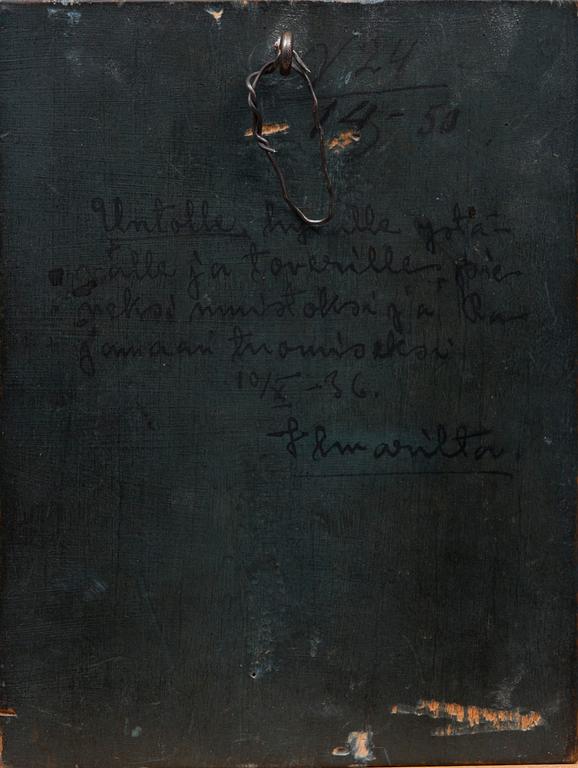 V 24
14 - 50
Untolle, hyvälle ystä-
välle ja toverille, pie-
neksi muistoksi ja "Ra-
jamaan tuomiseksi
10/X -36.
Ilmarilta.